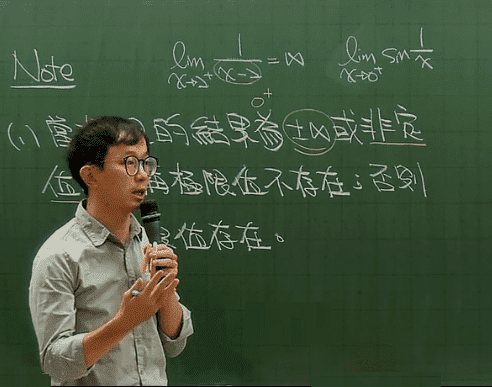 Note lim x→2⁺ 1/(x-2) = ∞ lim x→0⁺ sin 1/x
0⁺
(1) 當 的結果為 ±∞ 或非定
值 極限值不存在；否則
限值存在。